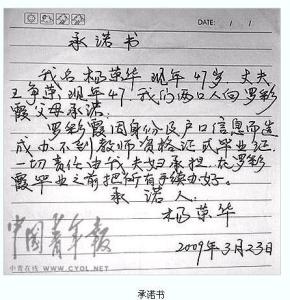 DATE: / /
承诺书
我名杨荣华现年47岁，丈夫
王峥嵘现年47，我们两口人向罗彩
霞父母承诺：
罗彩霞因身份及户口信息而造
成办不到教师资格证或毕业证，
一切责任由我夫妇承担，在罗彩
霞毕业之前把所有手续办好。
承诺人：
杨荣华
2009年3月23日
中国青年报
中青在线 WWW.CYOL.NET
承诺书